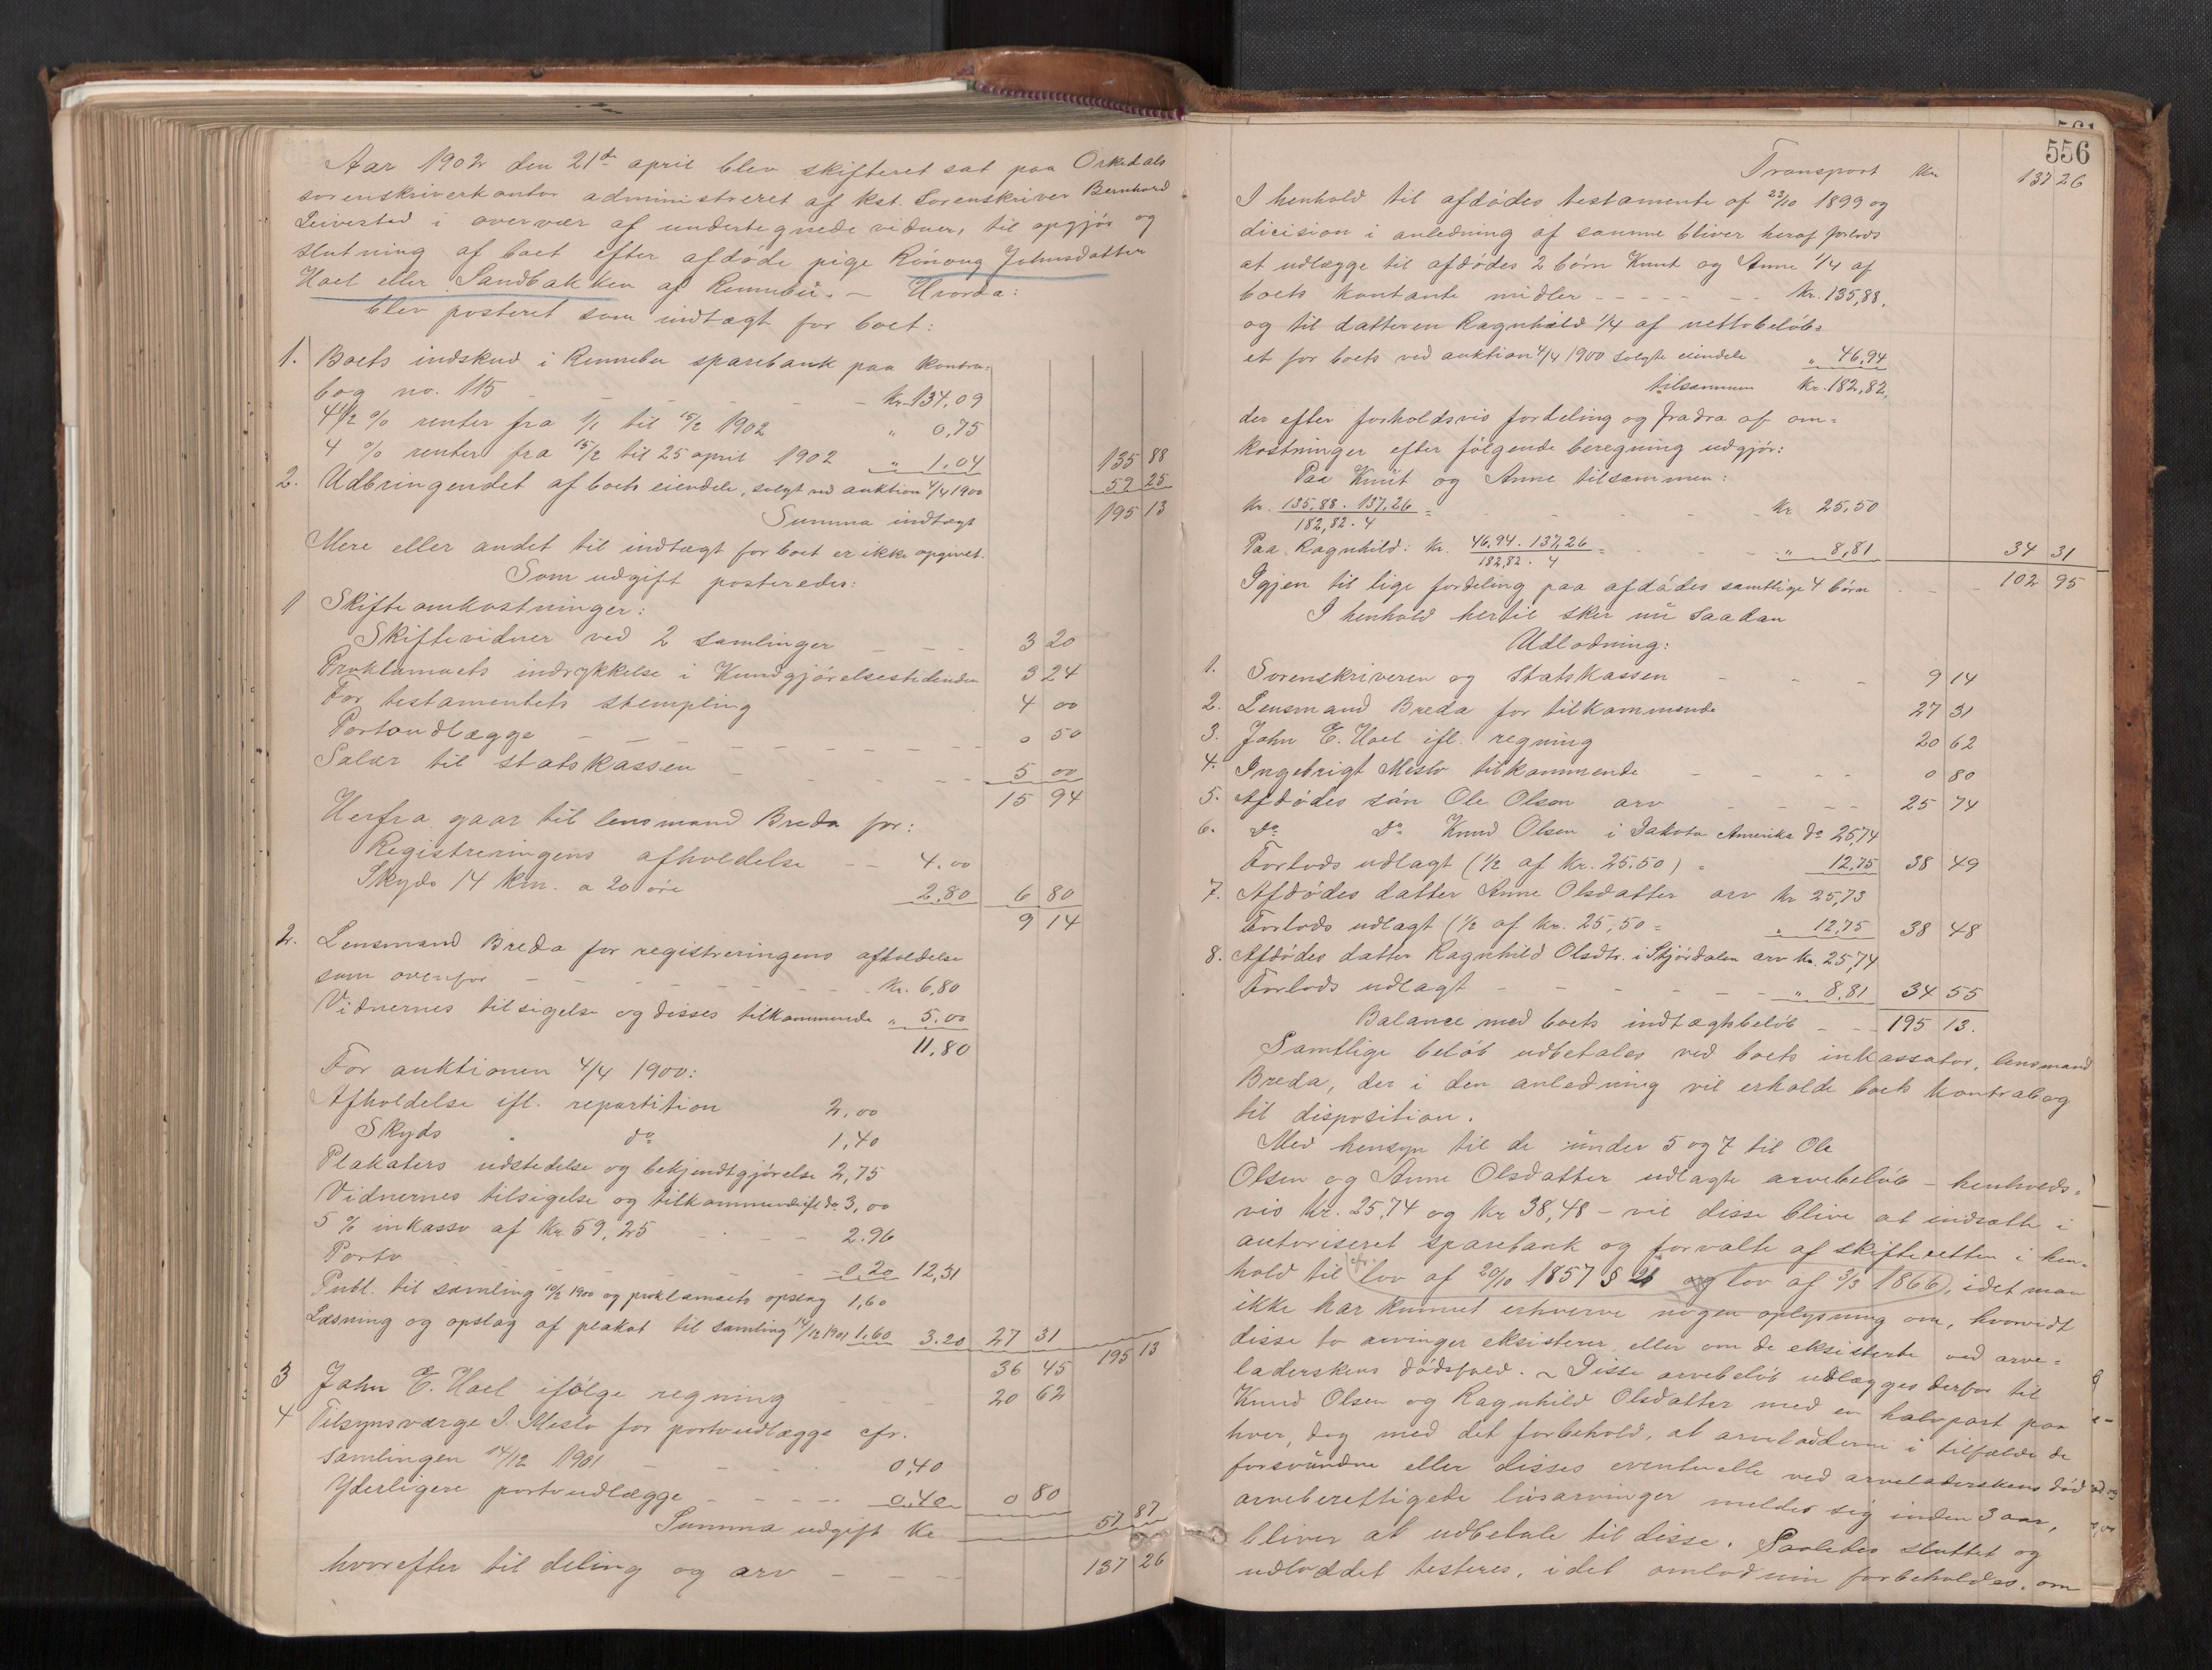 Aar 1902 den 21de april blev skifteret sat paa Orkedals
sorenskriverkontor administreret af kst. Sorenskriver Bernhard
Sivertsd i overvær af undertegnede vidner, til opgjør og
slutning af boet efter afdøde pige Rönoug Johnsdatter
Hoel eller Sandbakken af Rennebu. – Hvorda:
blev posteret som indtægt for boet:
1. Boets indskud i Rennebu sparebank paa kontra-
bog no. 115 – – – – – Kr. 134,09
4 1/2 % renter fra 1/1 til 15/2 1902 " 0,75
4 % renter fra 15/2 til 25 april 1902 " 1.04 135 88
2. Udbringendet af boets eiendele, solgt ved auktion 4/4 1900 59 25
Summa indtægt 195 13
Mere eller andet til indtægt for boet er ikke opgivet.
Som udgift posteredes:
1 Skifteomkostninger:
Skiftevidner ved 2 samlinger – – – 3 20
Proklamaets indrykkelse i Kundgjørelsestidende 3 24
For testamentets stempling 4 00
Portoudlægge – – – – – – – 0 50
Salær til statskassen – – – – – 5 00
15 94
Herfra gaar til lensmand Breda for:
Registreringens afholdelse – – 4.00
Skyds 14 km. a 20 øre 2.80 6 80
9 14
2. Lensmand Breda for registreringens afholdelse
som ovenfor – – – – – – – Kr. 6,80
Vidnernes tilsigelse og disses tilkommende " 5.00
11,80
For auktionen 4/4 1900:
Afholdelse ifl. repartition 2,00
Skyds " do 1,40
Plakaters udstedelse og bekjendtgjørelse 2,75
Vidnernes tilsigelse og tilkommende ifl do. 3,00
5 % inkasso af Kr. 59,25 – – – 2.96
Porto – – – – – – – 0.20 12,31
Publ. til samling 10/2 1900 og proklamaets opslag 1,60
Læsning og opslag af plakat til samling 14/12 1901 1.60 3.20 27 31
36 45 195 13
3 John E. Hoel ifølge regning – – – 20 62
4 Tilsynsværge I. Meslo for portoudlægge cfr.
samlingen 14/12 1901 – – – – 0,40
Yderligere portoudlægge – – – – 0.40 0 80
Summa udgift Kr. 57 87
hvorefter til deling og arv – – – – 137 26
556
Transport Kr. 137 26
I henhold til afdødes testamente af 23/10 1899 og
dicision i anledning af samme bliver heraf forlods
at udlægge til afdødes 2 børn Knut og Anne 1/4 af
boets kontante midler – – – – – – Kr. 135,88.
og til datteren Ragnhild 1/4 af nettobeløb=
et for boets ved auktion 4/4 1900 solgte eiendele " 46,94
tilsammen Kr. 182,82,
der efter forholdsvis fordeling og fradra af om=
kostninger efter følgende beregning udgjør:
Paa Knut og Anne tilsammen:
Kr. 135,88 . 137,26 / 182,82 . 4 = – – – – Kr 25,50
Paa Ragnhild: Kr. 46,94 . 137,26 / 182,82 . 4 = – – " 8,81 34 31
Igjen til lige fordeling paa afdødes samtlige 4 børn – – – 102 95
I henhold hertil sker nu saadan
Udlodning:
1. Sorenskriveren og Statskassen – – – 9 14
2. Lensmand Breda for tilkommende 27 31
3. John E. Hoel ifl. regning 20 62
4. Ingebrigt Meslo tilkommende – – – – 0 80
5. Afdødes søn Ole Olsen arv – – – – 25 74
6. do do Knud Olsen i Dakota Amerika do 25,74
Forlods udlagt (1/2 af Kr. 25.50) = 12,75 38 49
7. Afdødes datter Anne Olsdatter arv Kr 25,73
Forlods udlagt (1/2 af Kr. 25,50 = " 12,75 38 48
8. Afdødes datter Ragnhild Olsdtr. i Stjørdalen arv Kr. 25,74
Forlods udlagt – – – – – – " 8,81 34 55
Balance med boets indtægtsbeløb – – 195 13.
Samtlige beløb udbetales ved boets inkassator, lensmand
Breda, der i den anledning vil erholde boets kontrabog
til disposition.
Med hensyn til de under 5 og 7 til Ole
Olsen og Anne Olsdatter udlagte arvebeløb – henholds=
vis Kr. 25,74 og Kr 38,48 – vil disse blive at indsætte i
autoriseret sparebank og forvalte af skifteretten i hen=
hold til cfr. lov af 20/10 1857 § 26 og lov af 3/3 1866, idet man
ikke har kunnet erhverve nogen oplysning om, hvorvidt
disse to arvinger eksisterer, eller om de eksisterte ved arve=
laderskens dødsfald. – Disse arvebeløb udlægges derfor til
Knud Olsen og Ragnhild Olsdatter med en halvpart paa
hver, dog med det forbehold, at arvelodderne i tilfælde de
forsvundne eller disses eventuelle ved arveladerskens død
arveberettigede livsarvinger melder sig inden 3 aar,
bliver at udbetale til disse. Saaledes sluttet og
udloddet testeres, idet omlodnin forbeholdes, om